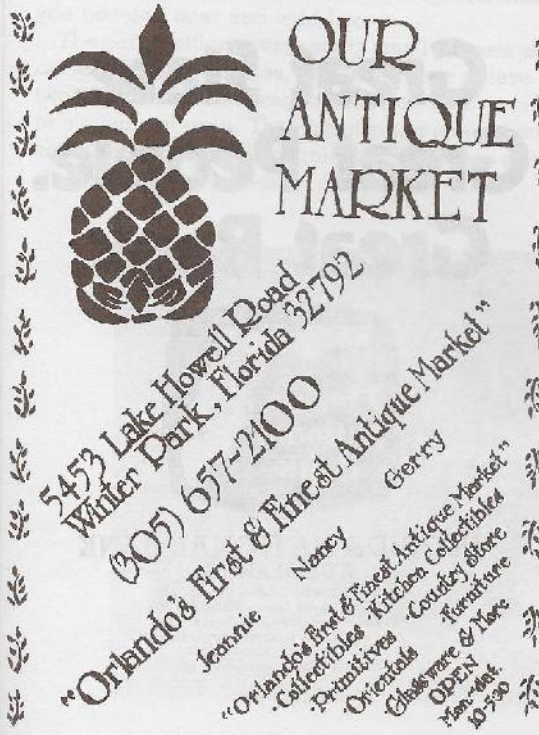 OUR
ANTIQUE
MARKET
5453 Lake Howell Road
Winter Park, Florida 32792
(305) 657-2100
"Orlando's First & Finest Antique Market"
Jeannie Nancy Gerry
"Orlando's First & Finest Antique Market"
·Collectibles ·Kitchen Collectibles
·Primitives ·Country Store
·Orientals ·Furniture
·Glassware & More
OPEN
Mon.-Sat.
10-5:30